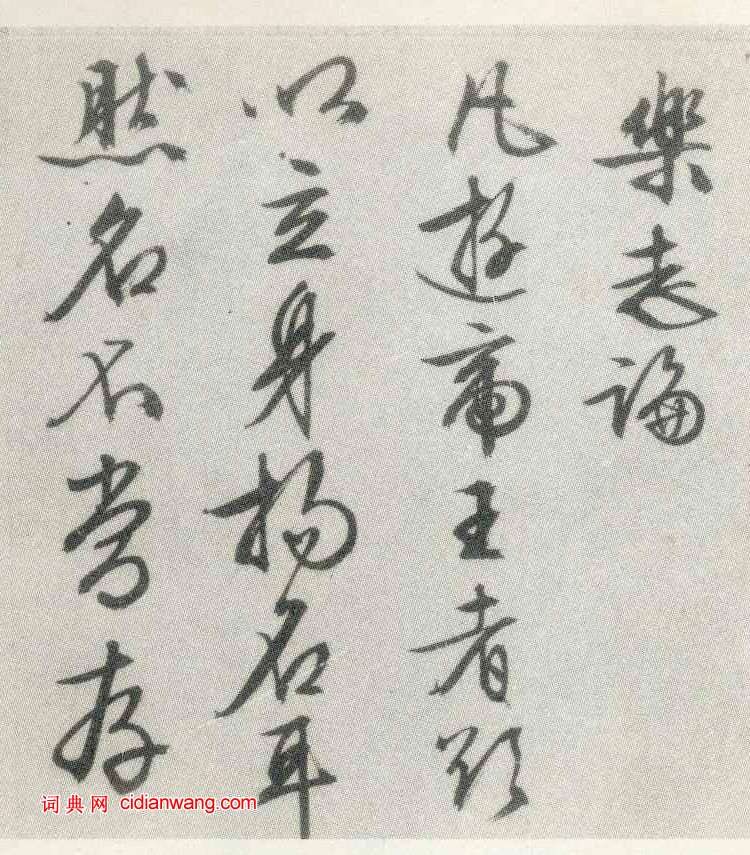 樂志論
凡遊帝王者欲
以立身揚名耳
然名不常存
词典网 cidianwang.com